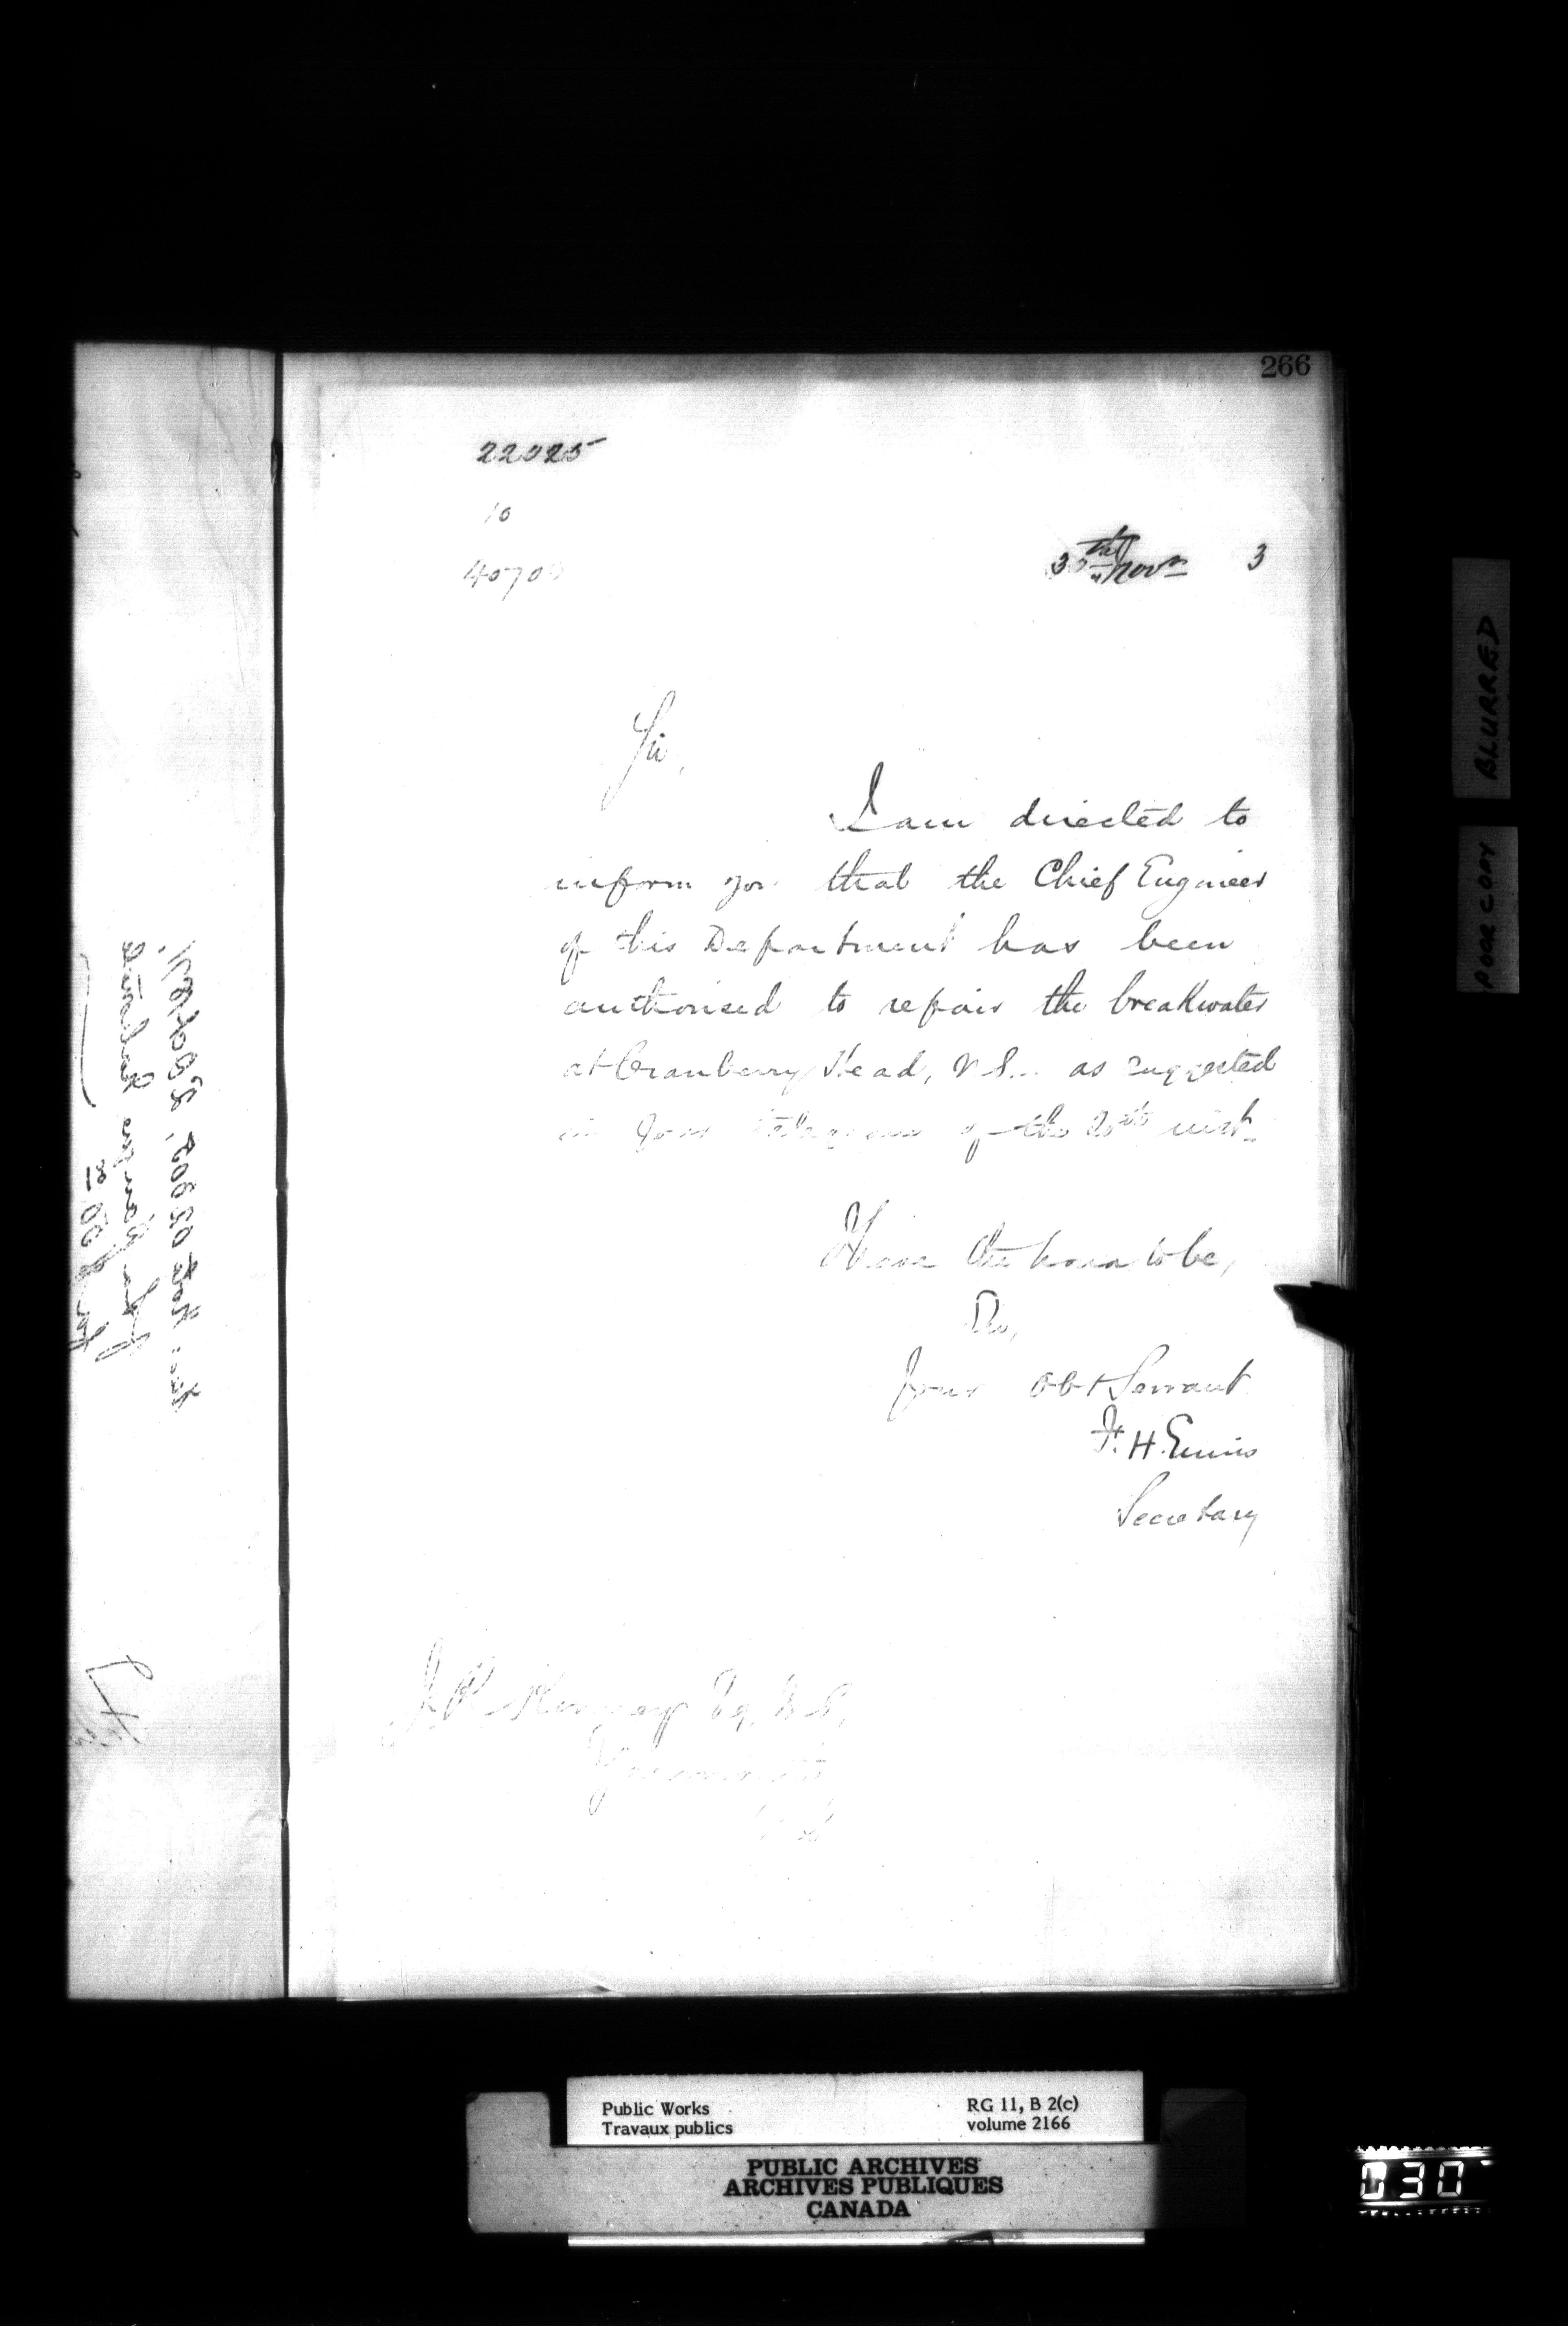 266
22025
10
40700
30th Novr 3
Sir,
I am directed to
inform you that the Chief Engineer
of this Department has been
authorised to repair the breakwater
at Cranberry Head, N.S. as suggested
in your telegram of the 20th inst.
I have the honor to be,
Sir,
Your Obt Servant
F. H. Ennis
Secretary
J. R. Kinney Esq, M.P.
Yarmouth
N.S.
BLURRED
POOR COPY
Public Works
Travaux publics
RG 11, B 2(c)
volume 2166
PUBLIC ARCHIVES
ARCHIVES PUBLIQUES
CANADA
030